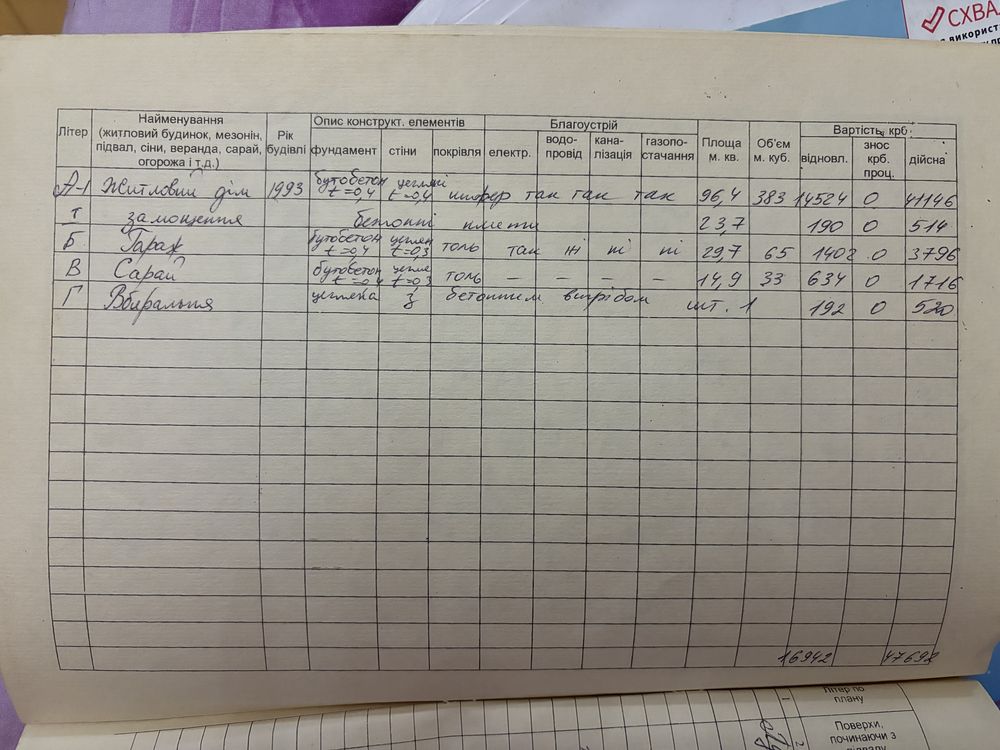 СХВА
використ
Найменування
(житловий будинок, мезонін,
підвал, сіни, веранда, сарай,
огорожа і т.д.)
Літер
Рік
будівлі
Опис конструкт. елементів
фундамент стіни покрівля
Благоустрій
електр. водо-
провід кана-
лізація газопо-
стачання
Площа
м. кв.
Об'єм
м. куб.
Вартість крб.
відновл. знос
крб.
проц. дійсна
А-1 Житловий дім 1993 бутобетон t=0,4 цегляні t=0,4 шифер так так так 96,4 383 14524 0 41146
т замощення бетонні плити 23,7 190 0 514
Б Гараж бутобетон t=0,4 цеглян t=0,3 толь так ні ні ні 29,7 65 1402 0 3796
В Сарай бутобетон t=0,4 цегле t=0,3 толь – – – – 14,9 33 634 0 1716
Г Вбиральня цегляна з бетонним вигрібом шт. 1 192 0 520
16942 47692
Літер по
плану
1
Поверхи,
починаючи з
підвалу
2